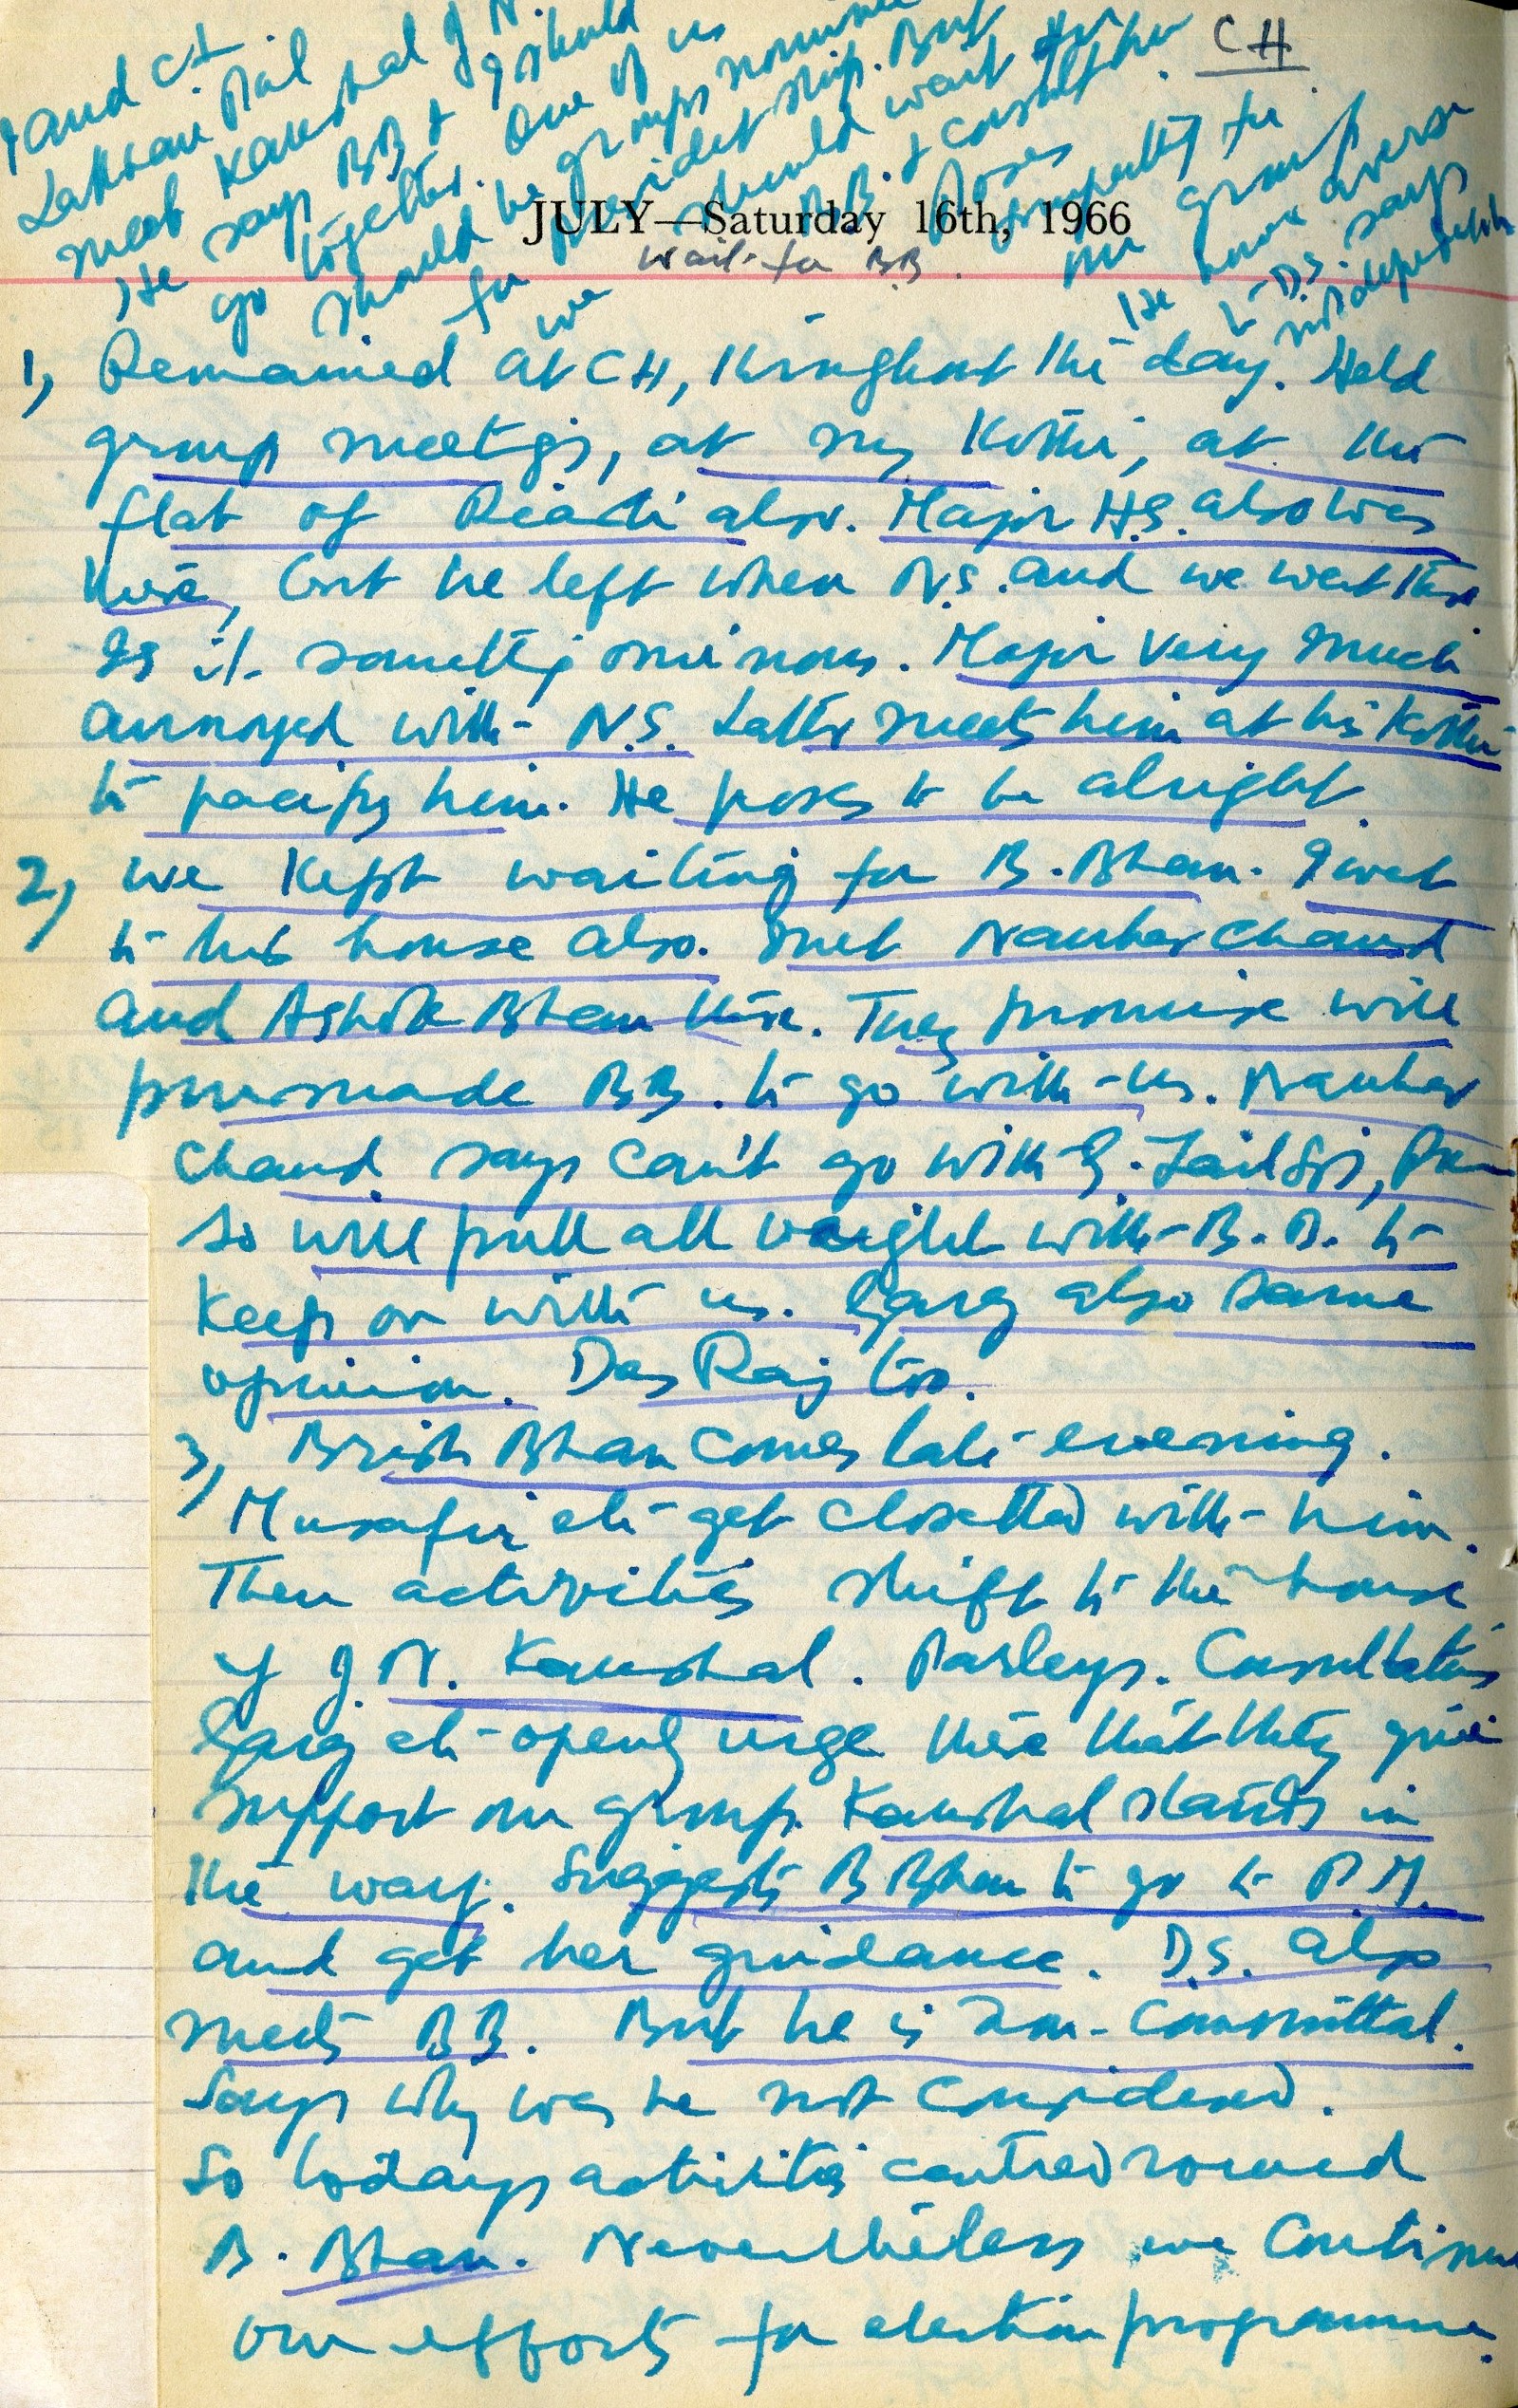 CH
I and Ct.
Lakhan Pal
meet Kaushal J. N.
He says BB & I should
go together. One of us
should be groups nominee
for President ship. But
we should wait for
BB. & consult him
Poses
sympathy for
our group
He more averse
to D.S. says
not dependable
JULY—Saturday 16th, 1966
Wait for BB.
1, Remained at CH, throughout the day. Held
group meetgs, at my Kothi, at the
flat of Reasti also. Major H.S. also was
there, but he left when N.S. and we went there
Is it somettg ominous. Major very much
annoyed with N.S. Latter meets him at his Kothi
to pacify him. He poses to be alright.
2, We kept waiting for B. Bhan. I went
to his house also. met Nauhar Chand
and Ashok Bhan there. They promise will
pursuade BB. to go with us. Nauhar
Chand says can't go with G. Zail Sgi,
so will pull all weight with B. B. to
keep on with us. Garg also same
opinion. Des Raj too.
3, Brish Bhan comes late evening.
Musafir etc get closetted with him.
Then activities shift to the house
of J. N. Kaushal. Parleys. Consultations
Garg etc openly urge there that they give
support our group. Kaushal stands in
the way. Suggests B Bhan to go to P.M.
and get her guidance. D.S. also
meets BB. But he is non-committal.
Says why was he not considered.
So todays activities centred round
B. Bhan. Nevertheless we continue
our efforts for election programme.